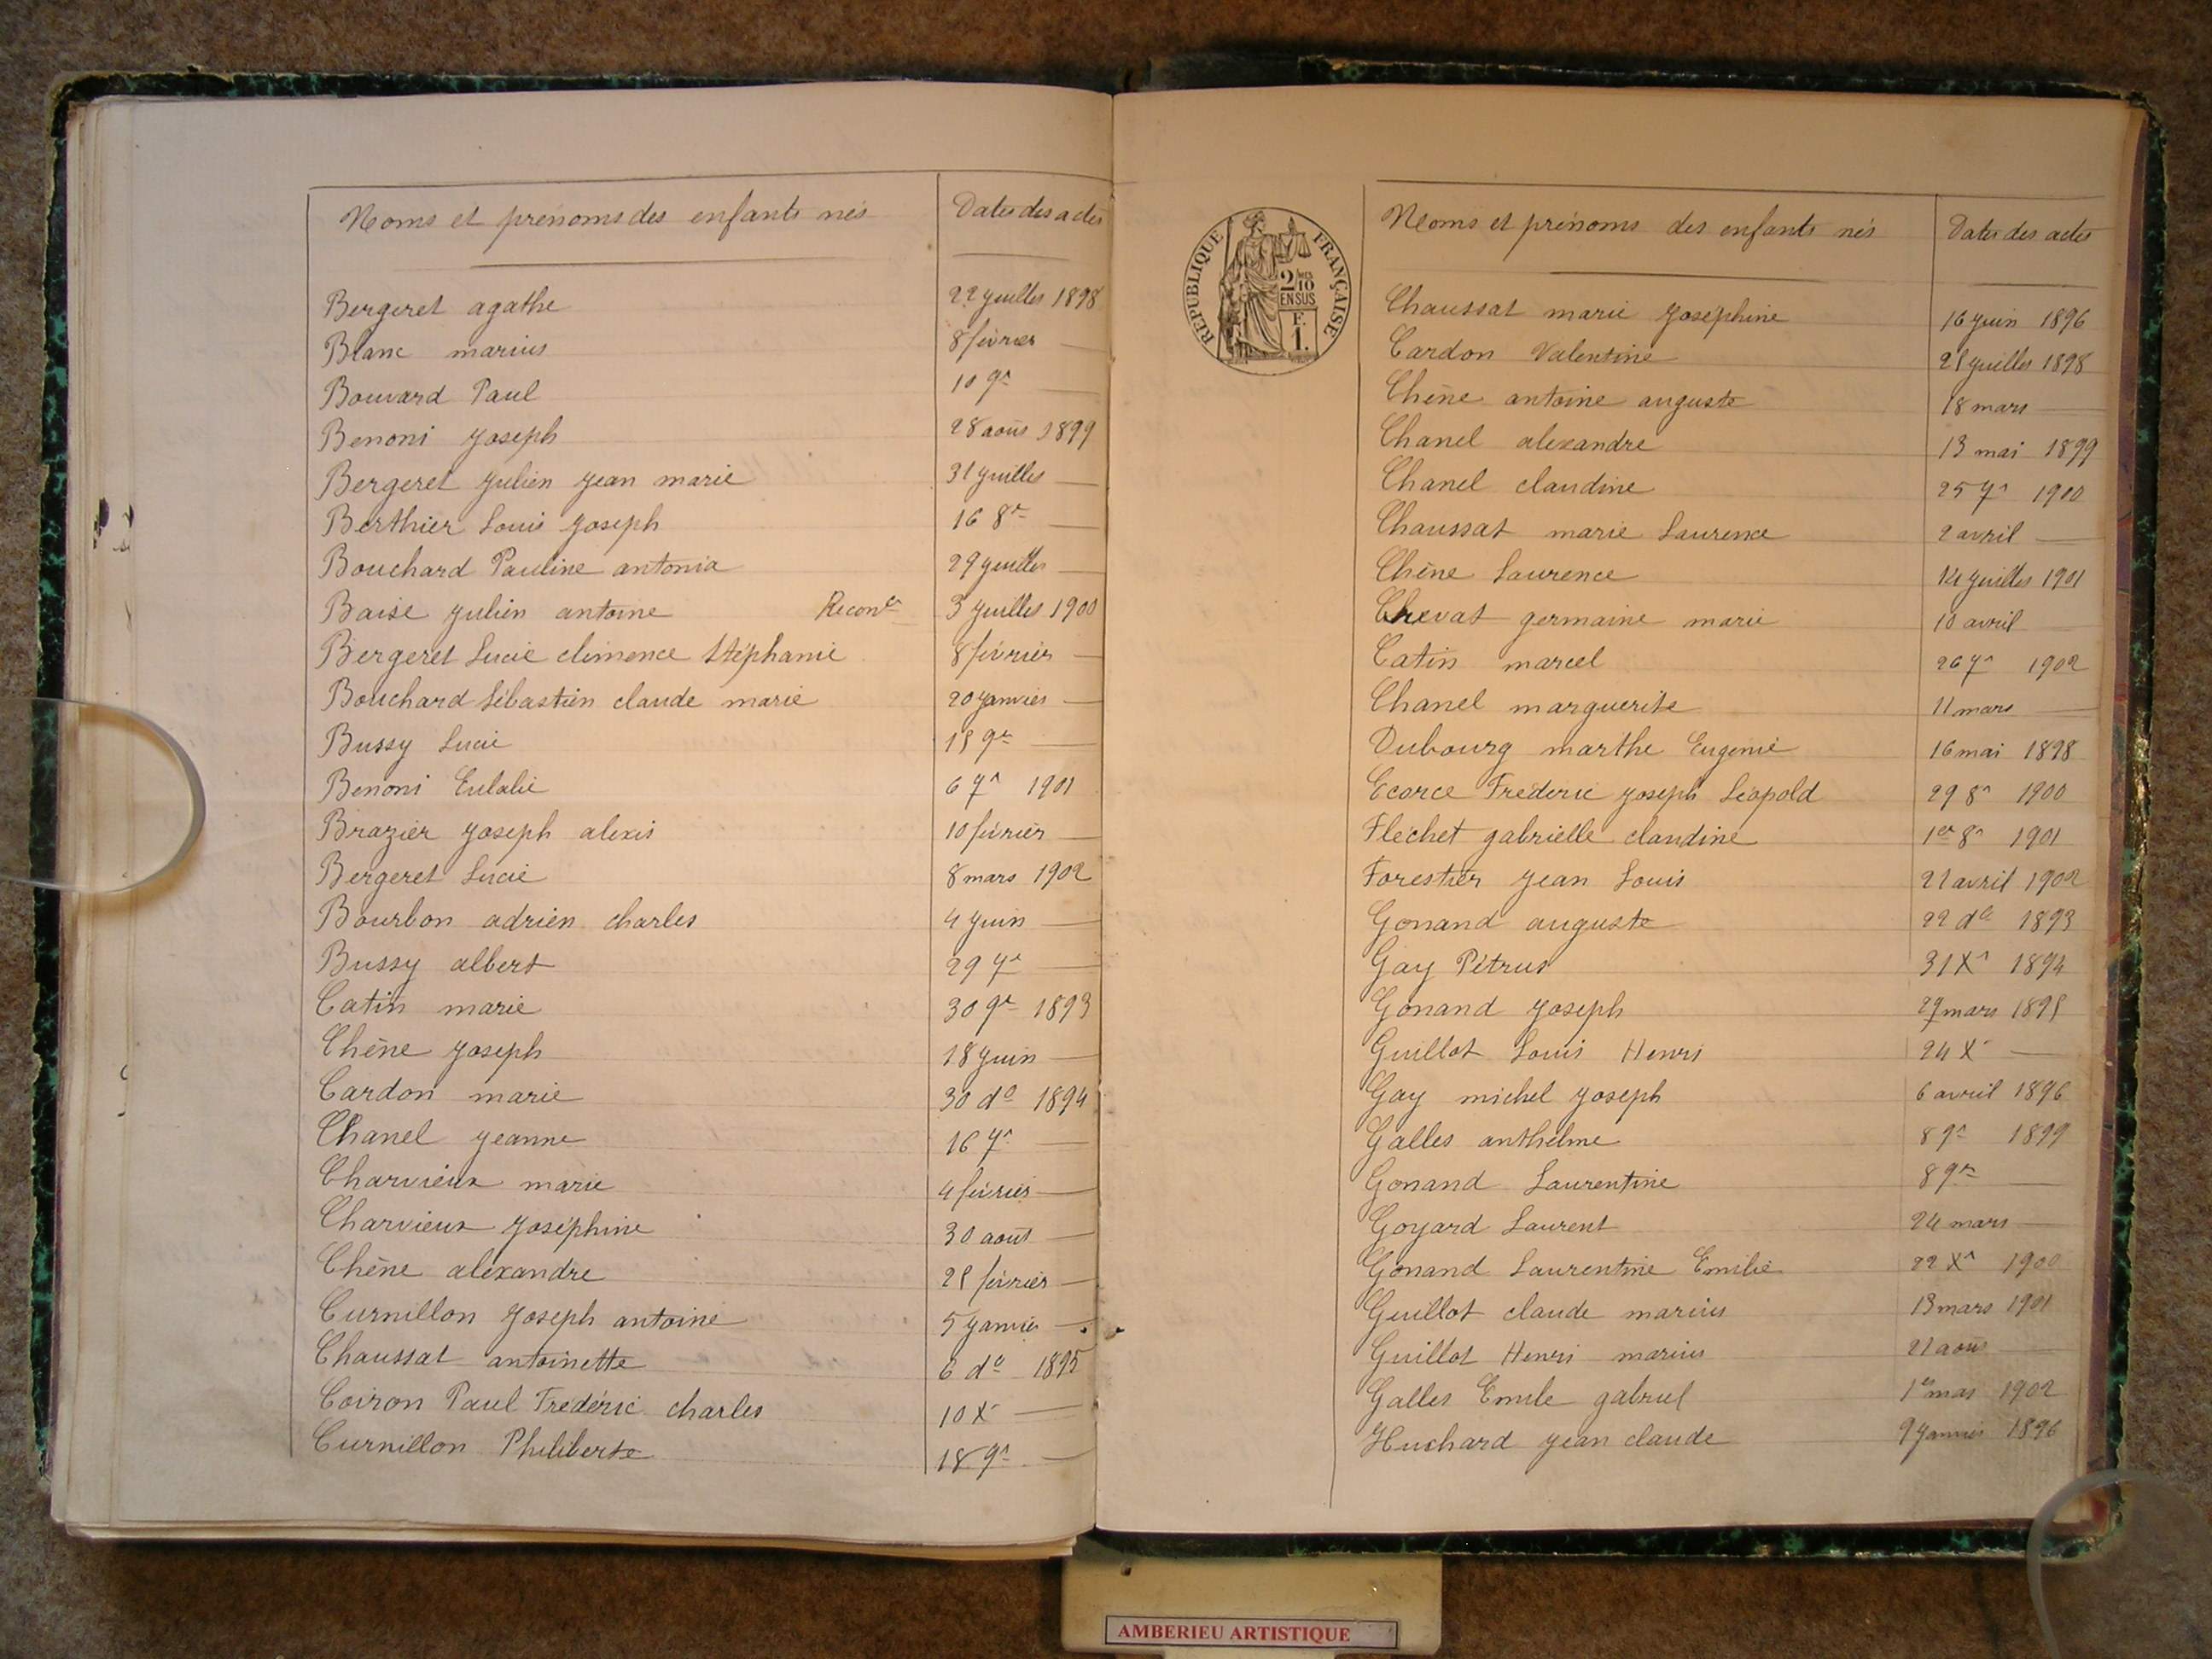 Noms et prénoms des enfants nés Dates des actes
Bergeret agathe 22 juillet 1898
Blanc marius 8 février —
Bouvard Paul 10 9re —
Benoni Joseph 28 août 1899
Bergeret Julien Jean marie 31 juillet —
Berthier Louis Joseph 16 8re —
Bouchard Pauline antonia 29 juillet —
Baise Julien antoine Reconce 3 juillet 1900
Bergeret Lucie clémence Stéphanie 8 février —
Bouchard Sébastien claude marie 20 janvier —
Bussy Lucie 15 9re —
Benoni Eulalie 6 7re 1901
Brazier Joseph alexis 10 février —
Bergeret Lucie 8 mars 1902
Bourbon adrien charles 4 juin —
Bussy albert 29 7re —
Catin marie 30 9re 1893
Chêne Joseph 18 juin —
Cardon marie 30 do 1894
Chanel Jeanne 16 7re —
Charvieux marie 4 février —
Charvieux Joséphine 30 août —
Chêne alexandre 25 février —
Curnillon Joseph antoine 5 janvier —
Chaussat antoinette 6 do 1895
Coiron Paul Frédéric charles 10 Xre —
Curnillon Philiberte 18 9re —
REPUBLIQUE FRANÇAISE
2/10 EN SUS
F. 1.
Noms et prénoms des enfants nés Dates des actes
Chaussat marie Joséphine 16 juin 1896
Cardon Valentine 25 juillet 1898
Chêne antoine auguste 18 mars —
Chanel alexandre 13 mai 1899
Chanel claudine 25 7re 1900
Chaussat marie Laurence 2 avril —
Chêne Laurence 14 juillet 1901
Chevat germaine marie 10 avril —
Catin marcel 26 7re 1902
Chanel marguerite 11 mars —
Dubourg marthe Eugenie 16 mai 1898
Ecorce Frédéric Joseph Léopold 29 8re 1900
Fléchet gabrielle claudine 1er 8re 1901
Forestier Jean Louis 21 avril 1902
Gonand auguste 22 do 1893
Gay Pétrus 31 Xre 1894
Gonand Joseph 27 mars 1895
Guillot Louis Henri 24 Xre —
Gay michel Joseph 6 avril 1896
Galles anthelme 8 9re 1899
Gonand Laurentine 8 9re —
Goyard Laurent 24 mars —
Gonand Laurentine Emilie 22 Xre 1900
Guillot claude marius 13 mars 1901
Guillot Henri marius 21 août —
Galles Emile gabriel 1er mai 1902
Huchard Jean claude 9 janvier 1896
AMBERIEU ARTISTIQUE